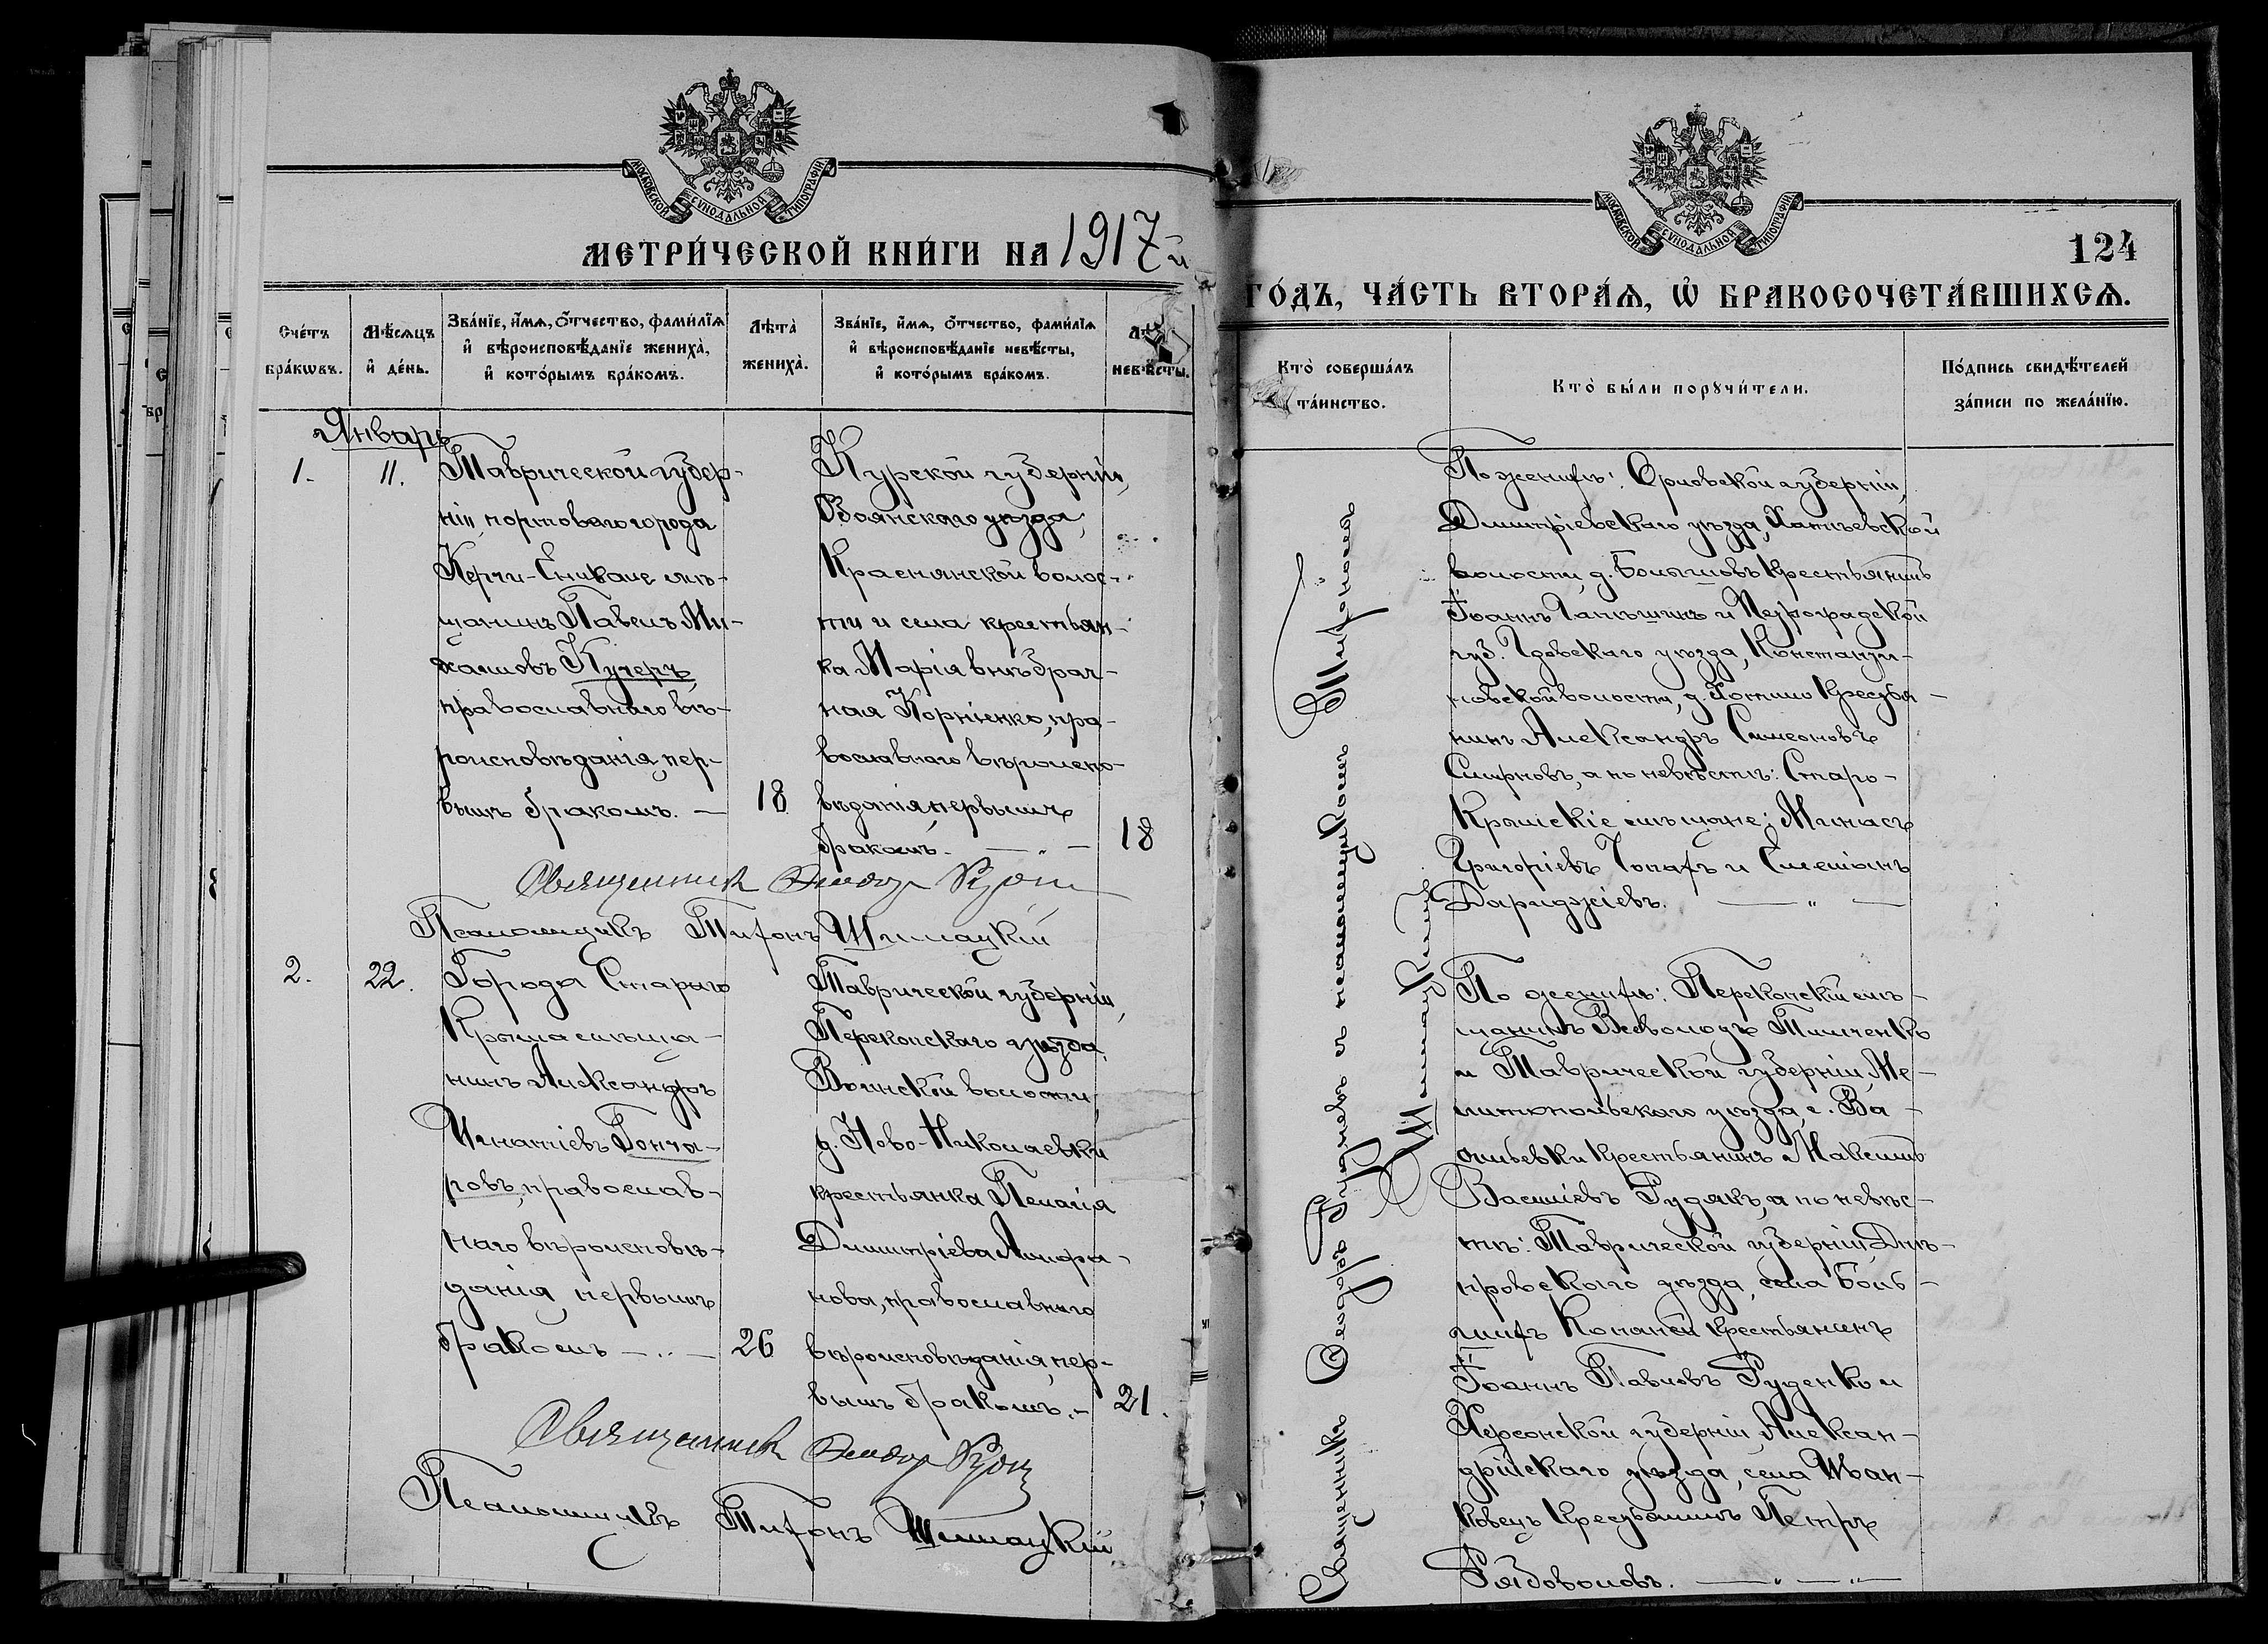 МОСКОВСКОЙ СУНОДАЛЬНОЙ ТИПОГРАФІИ
МЕТРИ́ЧЕСКОЙ КНИ́ГИ НА 1917-й
Сче́тъ бра́кωвъ.
Мѣ́сяцъ и҆ де́нь.
Зва́нїе, и҆́мѧ, ѻ҆́тчество, фами́лїѧ и҆ вѣроисповѣ́данїе жениха̀, и҆ кото́рымъ бра́комъ.
Лѣта̀ жениха̀.
Зва́нїе, и҆́мѧ, ѻ҆́тчество, фами́лїѧ и҆ вѣроисповѣ́данїе невѣ́сты, и҆ кото́рымъ бра́комъ.
невѣ́сты.
Январь
1.
11.
Таврической губер-
ніи, портоваго города
Керчи-Еникале мѣ-
щанинъ Павелъ Ми-
хаиловъ Кучеръ,
православнаго вѣ-
роисповѣданія, пер-
вымъ бракомъ. —
18
Курской губерніи,
уѣзда,
Краснянской волос-
ти и села крестьян-
ка Марія внѣбрач-
ная Корніенко, пра-
вославнаго вѣроиспо-
вѣданія, первымъ
бракомъ. — „ —
18
Священникъ
Псаломщикъ Тихонъ Шишацкій
2.
22.
Города Стараго
Крыма мѣща-
нинъ Александръ
Игнатіевъ Гонча-
ровъ, православ-
наго вѣроисповѣ-
данія, первымъ
бракомъ — „ —
26
Таврической губерніи,
Перекопскаго уѣзда,
Воинской волости,
д. Ново-Николаевки
крестьянка Пелагія
Димитріева
нова, православнаго
вѣроисповѣданія, пер-
вымъ бракомъ. —
21.
Священникъ
Псаломщикъ Тихонъ Шишацкій
МОСКОВСКОЙ СУНОДАЛЬНОЙ ТИПОГРАФІИ
124
ГО́ДЪ, ЧА́СТЬ ВТОРА́Ѧ, Ѡ҆ БРАКОСОЧЕТА́ВШИХСѦ.
Кто̀ соверша́лъ та́инство.
Кто̀ бы́ли порꙋчи́тели.
По́дпись свидѣ́телей за́писи по жела́нїю.
Священникъ Ѳеодоръ съ псаломщикомъ Тихономъ
Шишацкимъ
По женихѣ: Орловской губерніи,
Димитріевскаго уѣзда,
волости, д. крестьянинъ
Іоаннъ и Петроградской
губ. Гдовскаго уѣзда, Константи-
новской волости, д. крестья-
нинъ Александръ Симеоновъ
Смирновъ, а по невѣстѣ: Старо-
Крымскіе мѣщане: Минасъ
Григоріевъ и
— „ —
По женихѣ: Перекопскій мѣ-
щанинъ Всеволодъ Тимченко
и Таврической губерніи, Ме-
литопольскаго уѣзда, с. Ва-
сильевки крестьянинъ Максимъ
Василіевъ Рудякъ, а по невѣс-
тѣ: Таврической губерніи, Днѣ-
провскаго уѣзда, села Боль-
шихъ Копаней крестьянинъ
Іоаннъ Павловъ Руденко и
Херсонской губерніи, Алексан-
дрійскаго уѣзда, села Иван-
ковецъ крестьянинъ Петръ
Рябоволовъ. — „ — „ —